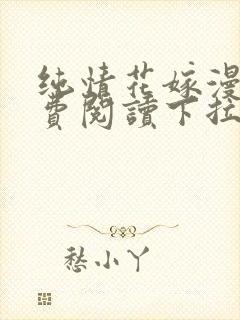 纯情花嫁漫
費閱讀下拉
愁小丫